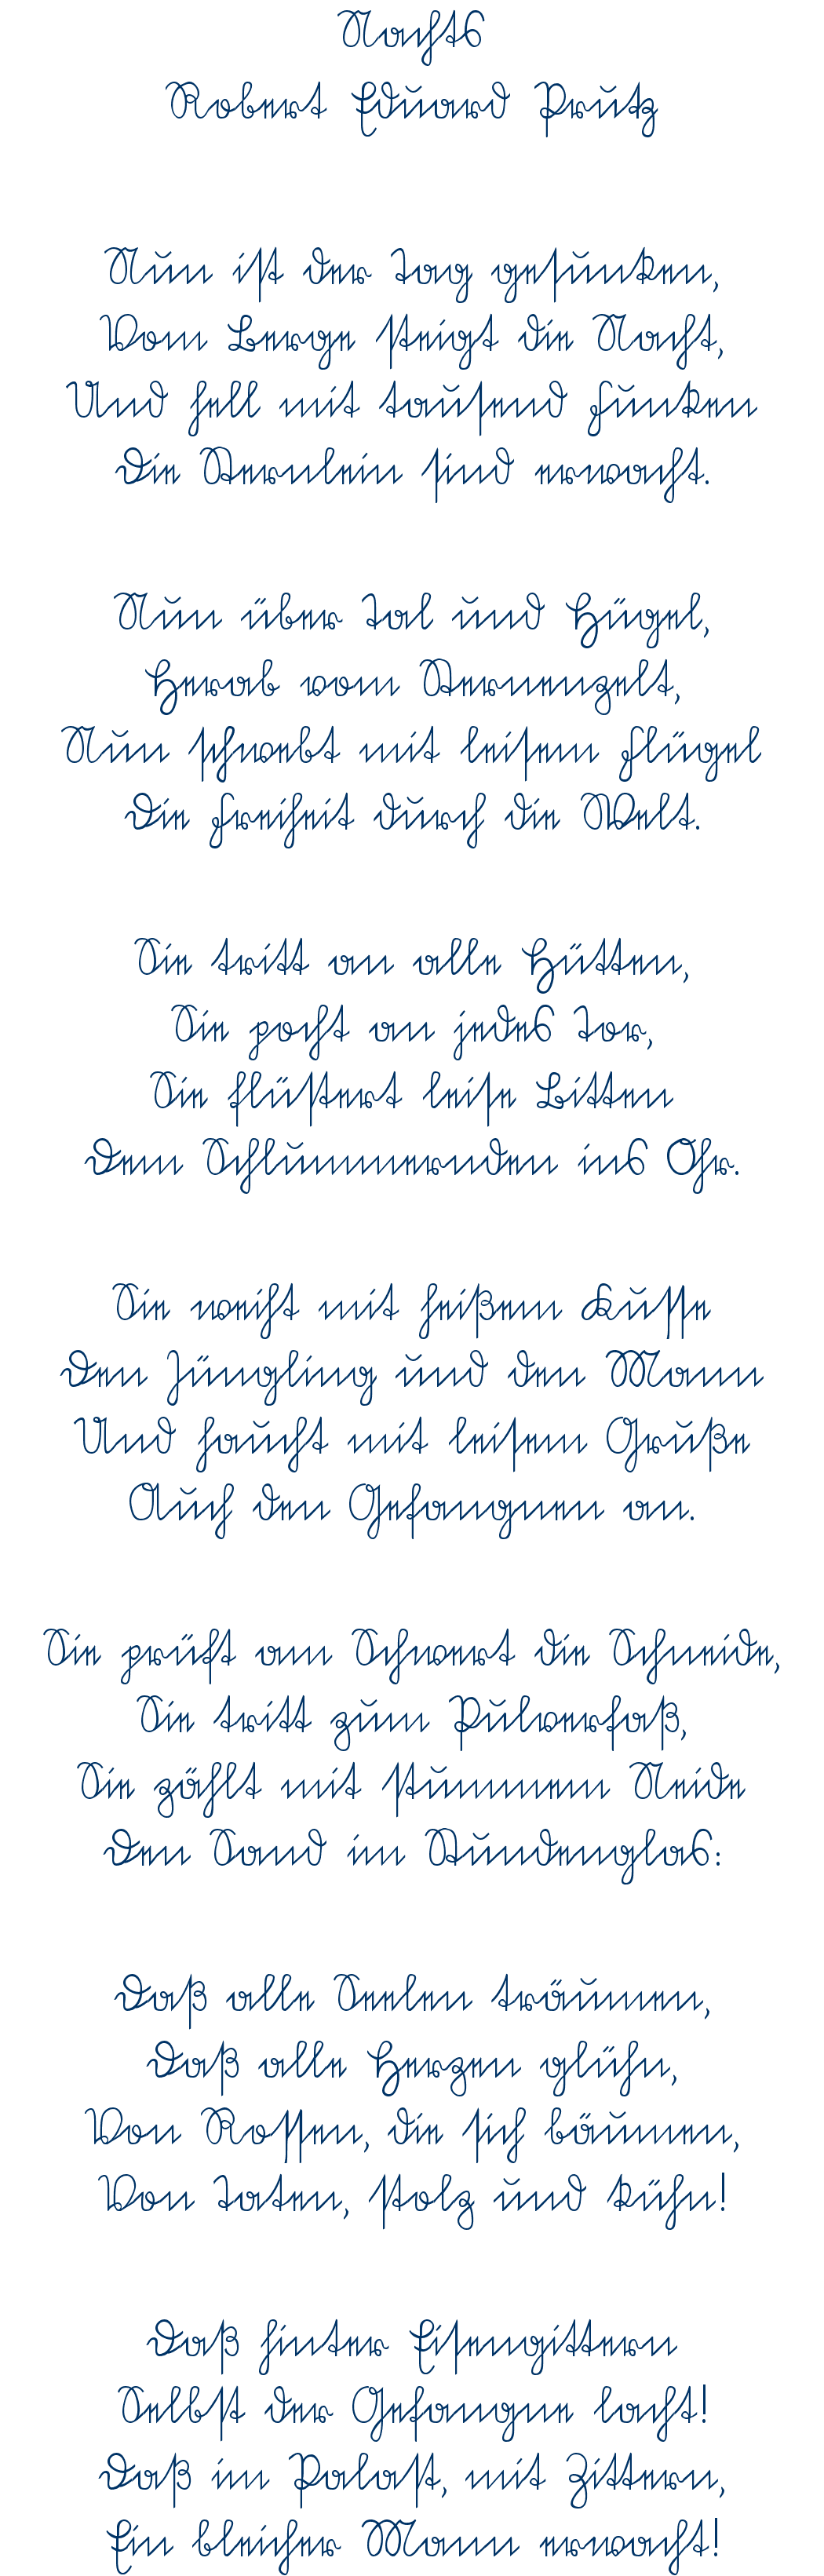 Nachts
Robert Eduard Prutz
Nun ist der Tag gesunken,
Vom Berge steigt die Nacht,
Und hell mit tausend Funken
Die Sternlein sind erwacht.
Nun über Tal und Hügel,
Herab vom Sternenzelt,
Nun schwebt mit leisem Flügel
Die Freiheit durch die Welt.
Sie tritt an alle Hütten,
Sie pocht an jedes Tor,
Sie flüstert leise Bitten
Dem Schlummernden ins Ohr.
Sie weiht mit heißem Kusse
Den Jüngling und den Mann
Und haucht mit leisem Gruße
Auch den Gefangnen an.
Sie prüft am Schwert die Schneide,
Sie tritt zum Pulverfaß,
Sie zählt mit stummem Neide
Den Sand im Stundenglas:
Daß alle Seelen träumen,
Daß alle Herzen glühn,
Von Rossen, die sich bäumen,
Von Taten, stolz und kühn!
Daß hinter Eisengittern
Selbst der Gefangne lacht!
Daß im Palast, mit Zittern,
Ein bleicher Mann erwacht!